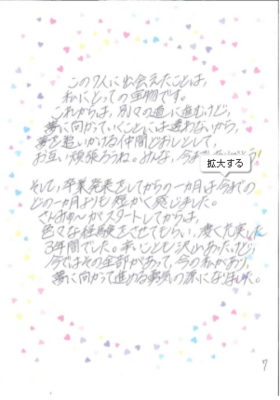 この7人に出会えたことは、
私にとっての宝物です。
これからは、別々の道に進むけど、
夢に向かっていくことには違わないから、
夢を追いかける仲間どおしとして、
お互い頑張ろうね。みんな、今まで
拡大する
そして、卒業発表をしてからの一カ月は今までの
どの一カ月よりも短かく感じました。
さんみゅ〜がスタートしてからは、
色々な経験をさせてもらい、凄く充実した
3年間でした。辛いことも沢山あったけど、
今ではその全部があって、今の私があり、
夢に向かって進める勇気の源になりました。
7